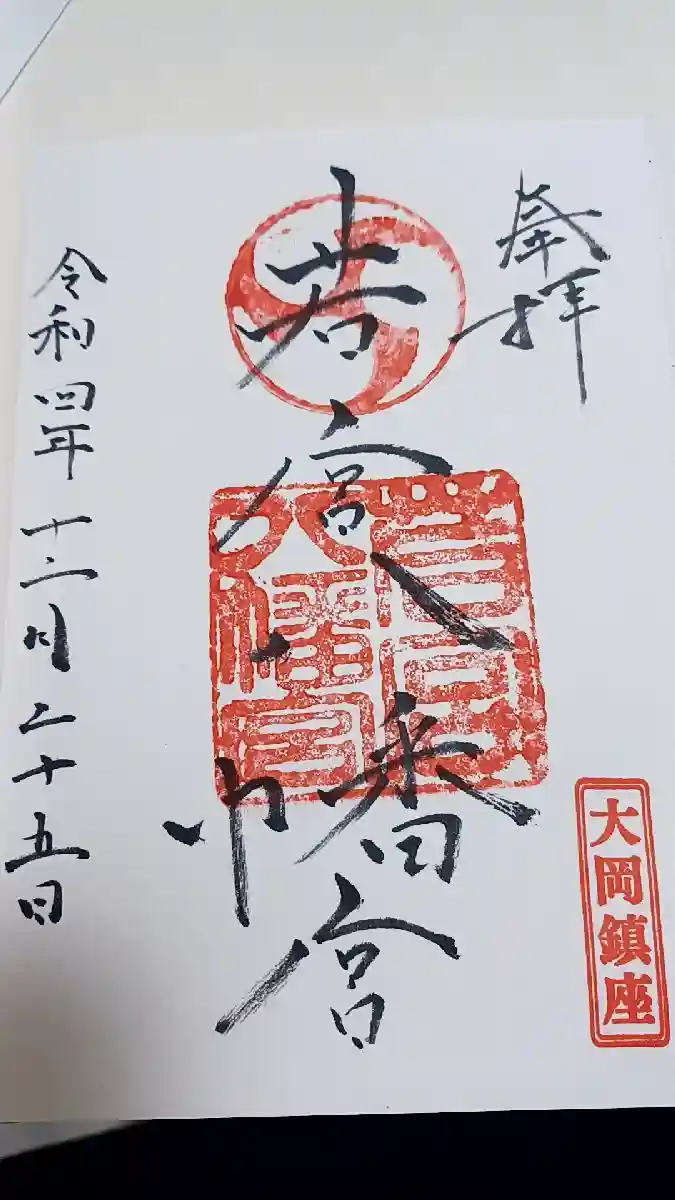 奉拝
若宮八幡宮
令和四年十二月二十五日
若宮八幡宮
大岡鎮座